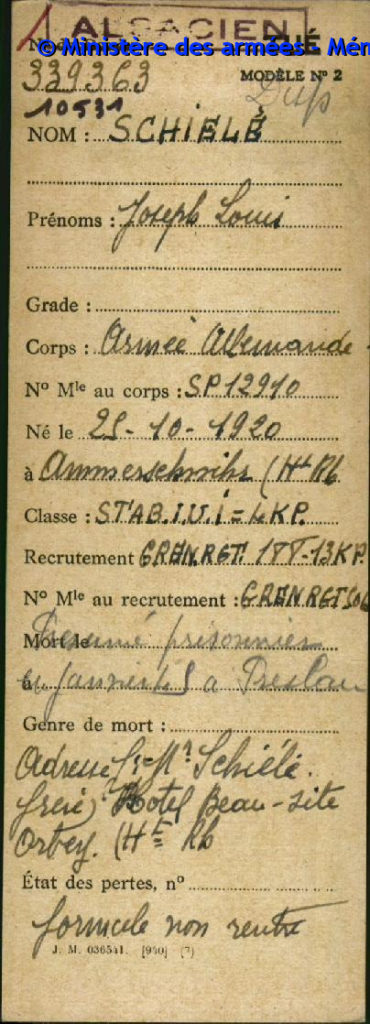 ALSACIEN
© Ministère des armées - Mém
339363
MODÈLE Nº 2
10531
NOM : SCHIELÉ
Prénoms : Joseph Louis
Grade :
Corps : Armée Allemande
Nº Mle au corps : SP12910
Né le 25-10-1920
à Ammerschwihr (Ht Rh
Classe : STAB.I.U.I = 4KP.
Recrutement GREN.RGT. 13KP.
Nº Mle au recrutement : GREN RGT
Mort le présumé prisonnier
à en janvier 45 a Breslau
Genre de mort :
Adresse Mr Schiélé.
frère Hotel Beau-site
Orbey. (Ht Rh
État des pertes, nº
formule non rentré
J. M. 036541. [940] (7)